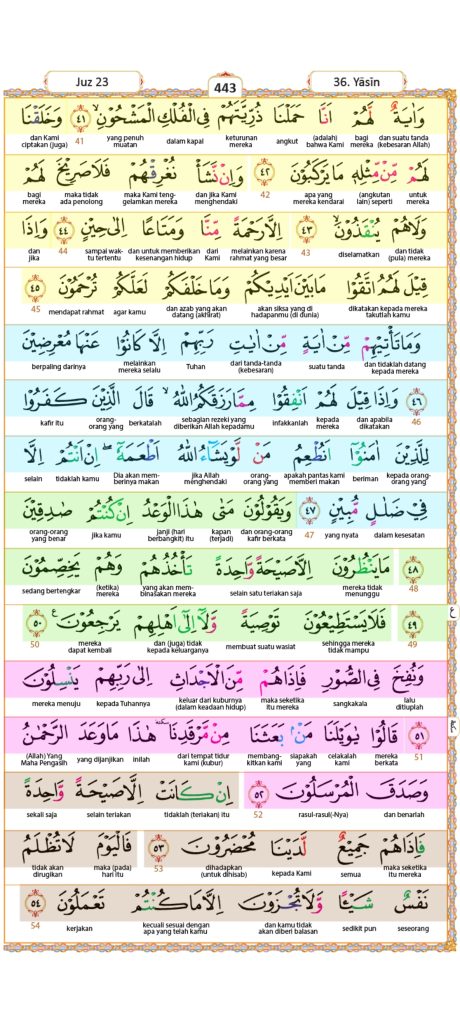 Juz 23
443
36. Yāsīn
وَاٰيَةٌ لَّهُمْ اَنَّا حَمَلْنَا ذُرِّيَّتَهُمْ فِى الْفُلْكِ الْمَشْحُوْنِۙ ٤١ وَخَلَقْنَا
dan suatu tanda (kebesaran Allah) bagi mereka (adalah) bahwa Kami angkut keturunan mereka dalam kapal yang penuh muatan 41 dan Kami ciptakan (juga)
لَهُمْ مِّنْ مِّثْلِهٖ مَا يَرْكَبُوْنَ ٤٢ وَاِنْ نَّشَأْ نُغْرِقْهُمْ فَلَا صَرِيْخَ لَهُمْ
untuk mereka (angkutan lain) seperti apa yang mereka kendarai 42 dan jika Kami menghendaki maka Kami tenggelamkan mereka maka tidak ada penolong bagi mereka
وَلَا هُمْ يُنْقَذُوْنَۙ ٤٣ اِلَّا رَحْمَةً مِّنَّا وَمَتَاعًا اِلٰى حِيْنٍ ٤٤ وَاِذَا
dan tidak (pula) mereka diselamatkan 43 melainkan karena rahmat yang besar dari Kami dan untuk memberikan kesenangan hidup sampai waktu tertentu 44 dan jika
قِيْلَ لَهُمُ اتَّقُوْا مَا بَيْنَ اَيْدِيْكُمْ وَمَا خَلْفَكُمْ لَعَلَّكُمْ تُرْحَمُوْنَ ٤٥
dikatakan kepada mereka takutlah kamu akan siksa yang di hadapanmu (di dunia) dan azab yang akan datang (akhirat) agar kamu mendapat rahmat 45
وَمَا تَأْتِيْهِمْ مِّنْ اٰيَةٍ مِّنْ اٰيٰتِ رَبِّهِمْ اِلَّا كَانُوْا عَنْهَا مُعْرِضِيْنَ
dan tidaklah datang kepada mereka suatu tanda dari tanda-tanda (kebesaran) Tuhan melainkan mereka selalu berpaling darinya
٤٦ وَاِذَا قِيْلَ لَهُمْ اَنْفِقُوْا مِمَّا رَزَقَكُمُ اللّٰهُ ۙ قَالَ الَّذِيْنَ كَفَرُوْا
46 dan apabila dikatakan kepada mereka infakkanlah sebagian rezeki yang diberikan Allah kepadamu berkatalah orang-orang yang kafir itu
لِلَّذِيْنَ اٰمَنُوْٓا اَنُطْعِمُ مَنْ لَّوْ يَشَاۤءُ اللّٰهُ اَطْعَمَهٗٓ ۖ اِنْ اَنْتُمْ اِلَّا
kepada orang-orang yang beriman apakah pantas kami memberi makan orang-orang yang jika Allah menghendaki Dia akan memberinya makan tidaklah kamu selain
فِيْ ضَلٰلٍ مُّبِيْنٍ ٤٧ وَيَقُوْلُوْنَ مَتٰى هٰذَا الْوَعْدُ اِنْ كُنْتُمْ صٰدِقِيْنَ
dalam kesesatan yang nyata 47 dan orang-orang kafir berkata kapan (terjadi) janji (hari berbangkit) itu jika kamu orang-orang yang benar
٤٨ مَا يَنْظُرُوْنَ اِلَّا صَيْحَةً وَّاحِدَةً تَأْخُذُهُمْ وَهُمْ يَخِصِّمُوْنَ
48 mereka tidak menunggu selain satu teriakan saja yang akan membinasakan mereka (ketika) mereka sedang bertengkar
٤٩ فَلَا يَسْتَطِيْعُوْنَ تَوْصِيَةً وَّلَآ اِلٰٓى اَهْلِهِمْ يَرْجِعُوْنَ ࣖ ٥٠
49 sehingga mereka tidak mampu membuat suatu wasiat dan (juga) tidak kepada keluarganya mereka dapat kembali 50
ع
وَنُفِخَ فِى الصُّوْرِ فَاِذَا هُمْ مِّنَ الْاَجْدَاثِ اِلٰى رَبِّهِمْ يَنْسِلُوْنَ
lalu ditiuplah sangkakala maka seketika itu mereka keluar dari kuburnya (dalam keadaan hidup) kepada Tuhannya mereka menuju
٥١ قَالُوْا يٰوَيْلَنَا مَنْۢ بَعَثَنَا مِنْ مَّرْقَدِنَا ۜ هٰذَا مَا وَعَدَ الرَّحْمٰنُ
51 mereka berkata celakalah kami siapakah yang membangkitkan kami dari tempat tidur kami (kubur) inilah yang dijanjikan (Allah) Yang Maha Pengasih
وَصَدَقَ الْمُرْسَلُوْنَ ٥٢ اِنْ كَانَتْ اِلَّا صَيْحَةً وَّاحِدَةً
dan benarlah rasul-rasul(-Nya) 52 tidaklah (teriakan) itu selain teriakan sekali saja
فَاِذَا هُمْ جَمِيْعٌ لَّدَيْنَا مُحْضَرُوْنَ ٥٣ فَالْيَوْمَ لَا تُظْلَمُ
maka seketika itu mereka semua kepada Kami dihadapkan (untuk dihisab) 53 maka (pada) hari itu tidak akan dirugikan
نَفْسٌ شَيْـًٔا وَّلَا تُجْزَوْنَ اِلَّا مَا كُنْتُمْ تَعْمَلُوْنَ ٥٤
seseorang sedikit pun dan kamu tidak akan diberi balasan kecuali sesuai dengan apa yang telah kamu kerjakan 54